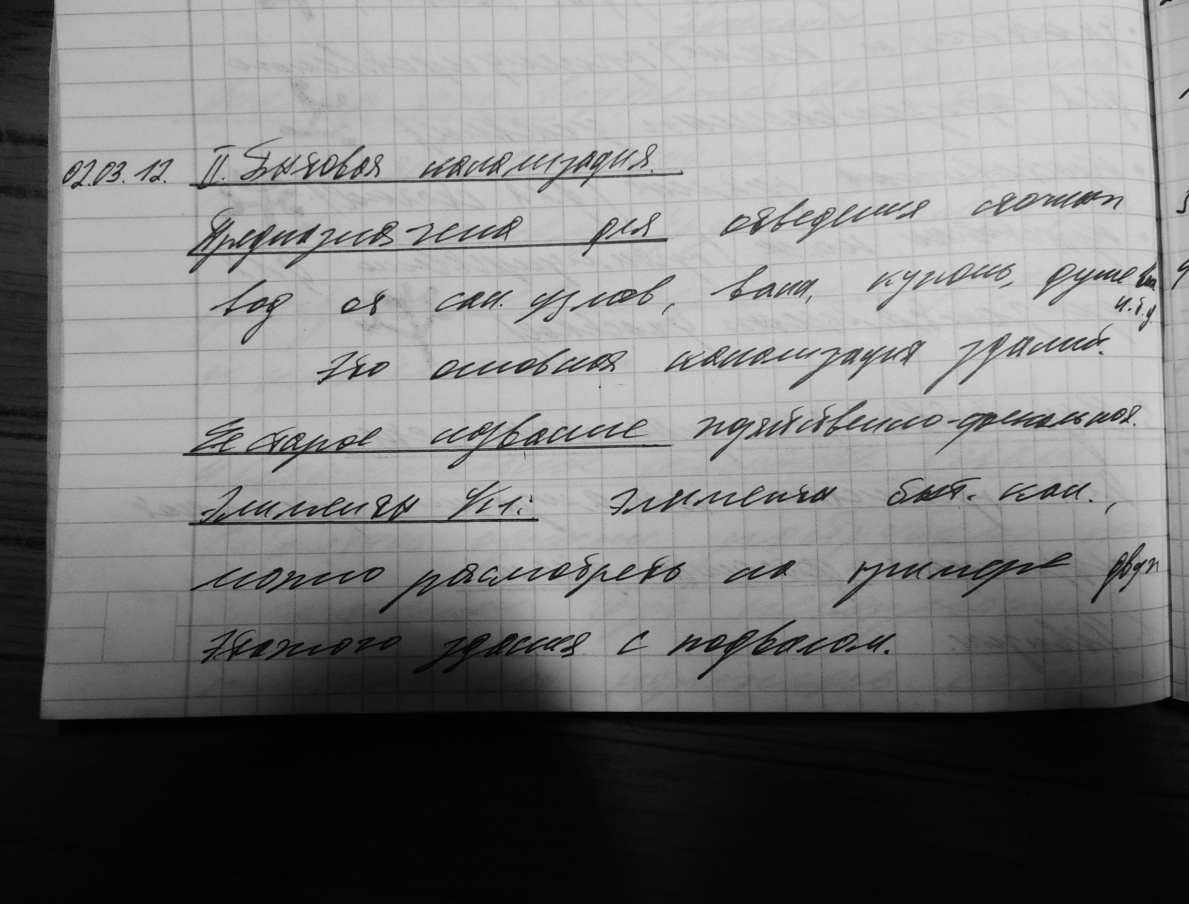 02.03.12. II. Бытовая канализация.
Предназначена для отведения сточных
вод от сан. узлов, ванн, кухонь, душевых
и.т.д.
Это основная канализация зданий.
Её старое название хозяйственно-фекальная.
Элименты К1: Элименты быт. кан.,
можно расмотреть на примере двух
этажного здания с подвалом.